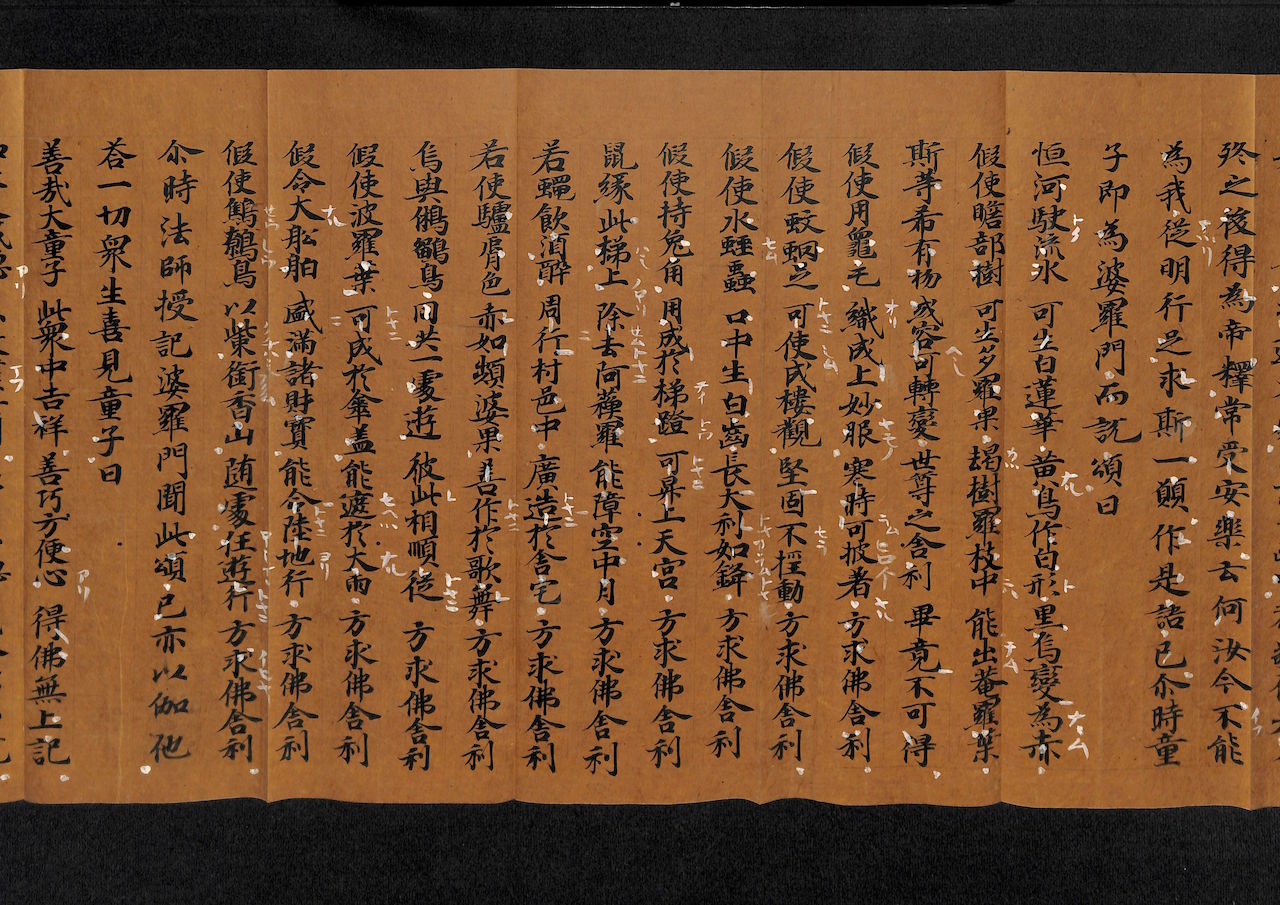 終之後得為帝釋常受安樂云何汝今不能
為我從明行足求斯一願作是語已尒時童
子即為婆羅門而說頌曰
恒河駛流水 可生白蓮華 黄鳥作白形 黒烏變為赤
假使瞻部樹 可生多羅果 朅樹羅枝中 能出菴羅葉
斯等希有物 或容可轉變 世尊之舍利 畢竟不可得
假使用龜毛 織成上妙服 寒時可披著 方求佛舍利
假使蚊蚋足 可使成樓觀 堅固不揺動 方求佛舍利
假使水蛭蟲 口中生白齒 長大利如鋒 方求佛舍利
假使持兔角 用成於梯蹬 可昇上天宮 方求佛舍利
鼠緣此梯上 除去阿蘓羅 能障空中月 方求佛舍利
若蠅飲酒醉 周行村邑中 廣造於舍宅 方求佛舍利
若使驢脣色 赤如頻婆果 善作於歌舞 方求佛舍利
烏與鵂鶹鳥 同共一處遊 彼此相順從 方求佛舍利
假使波羅葉 可成於傘蓋 能遮於大雨 方求佛舍利
假令大舩舶 盛滿諸財寶 能令陸地行 方求佛舍利
假使鷦鷯鳥 以㭰銜香山 随處任遊行 方求佛舍利
尒時法師授記婆羅門聞此頌已亦以伽他
荅一切衆生喜見童子曰
善哉大童子 此衆中吉祥 善巧方便心 得佛無上記